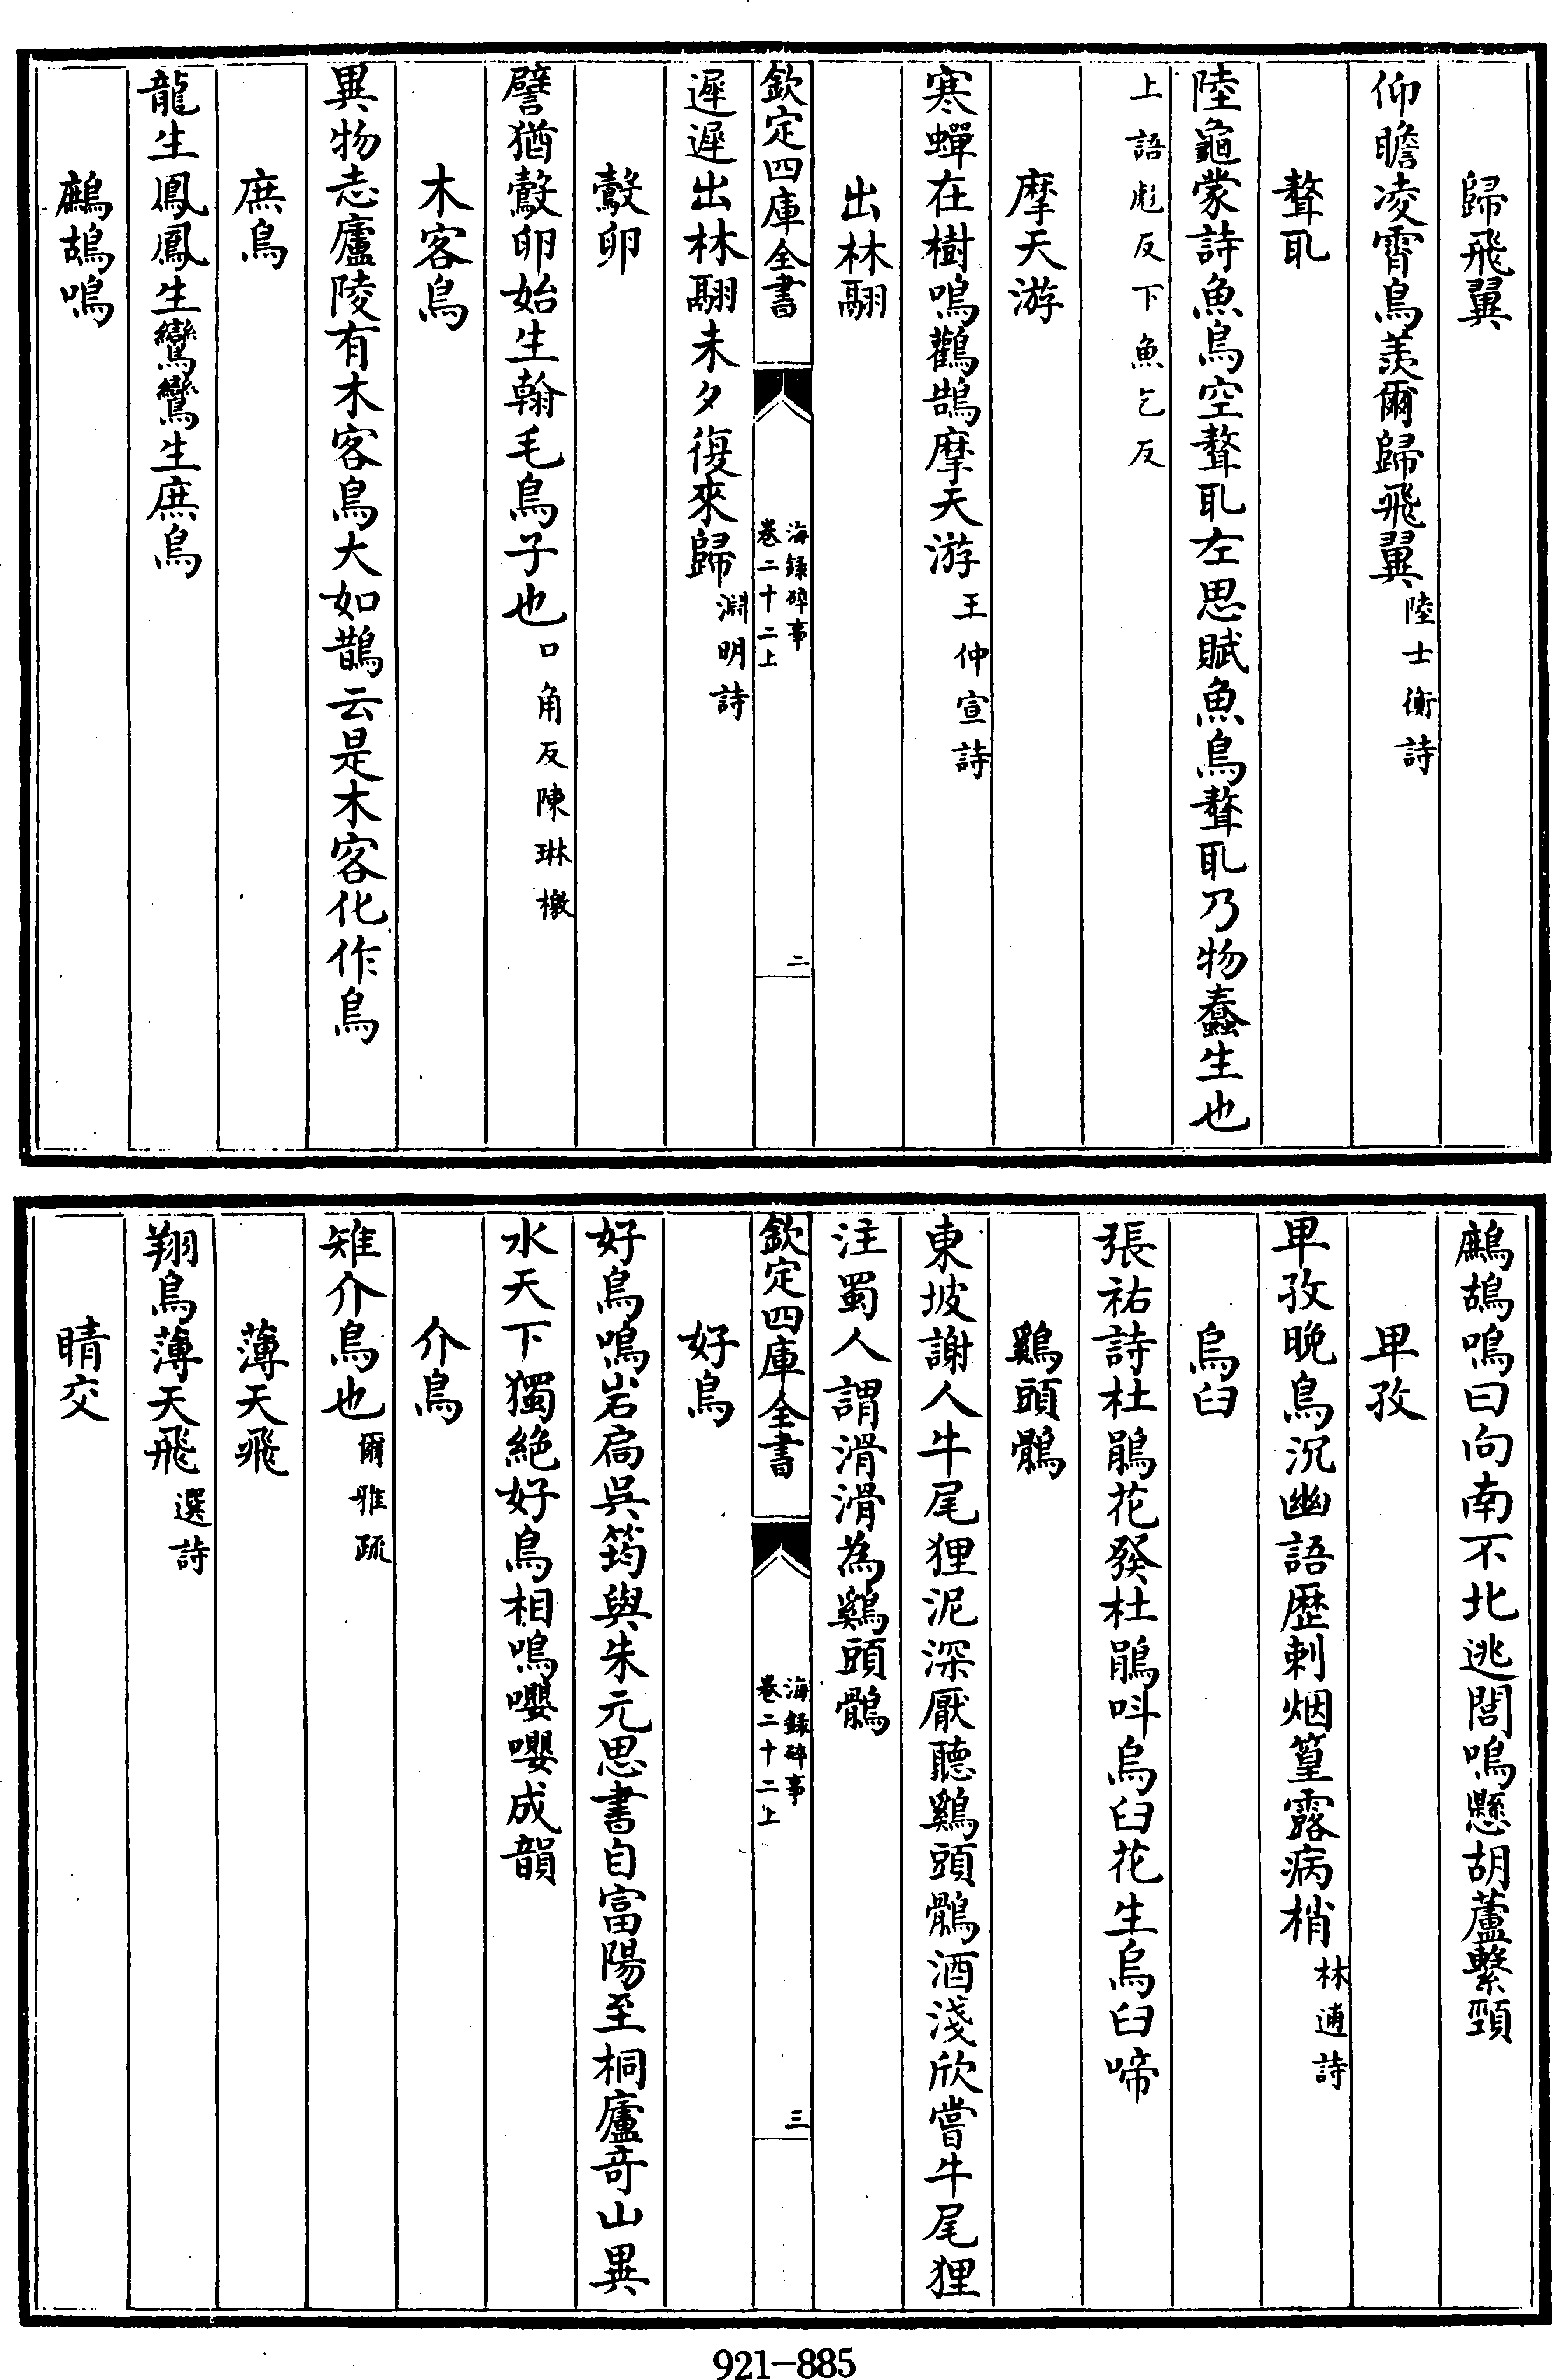 歸飛翼
仰瞻凌霄鳥羨爾歸飛翼陸士衡詩
聱耴
陸龜蒙詩魚鳥空聱耴左思賦魚鳥聱耴乃物蠢生也
上語彪反下魚乞反
摩天游
寒蟬在樹鳴鸛鵠摩天游王仲宣詩
出林翮
欽定四庫全書
海録碎事
卷二十二上
二
遲遲出林翮未夕復來歸淵明詩
鷇卵
譬猶鷇卵始生翰毛鳥子也口角反陳琳檄
木客鳥
異物志廬陵有木客鳥大如鵲云是木客化作鳥
庶鳥
龍生鳳鳳生鸞鸞生庶鳥
鷓鴣鳴
鷓鴣鳴曰向南不北逃閭鳴懸胡蘆繫頸
畢孜
畢孜晚鳥沉幽語歷剌烟篁露病梢林逋詩
烏臼
張祐詩杜鵑花發杜鵑呌烏臼花生烏臼啼
鷄頭鶻
東坡謝人牛尾狸泥深厭聽鷄頭鶻酒淺欣嘗牛尾狸
注蜀人謂滑滑為鷄頭鶻
欽定四庫全書
海録碎事
卷二十二上
三
好鳥
好鳥鳴岩扃吳筠與朱元思書自富陽至桐廬竒山異
水天下獨絶好鳥相鳴嚶嚶成韻
介鳥
雉介鳥也爾雅疏
薄天飛
翔鳥薄天飛選詩
晴交
921-885